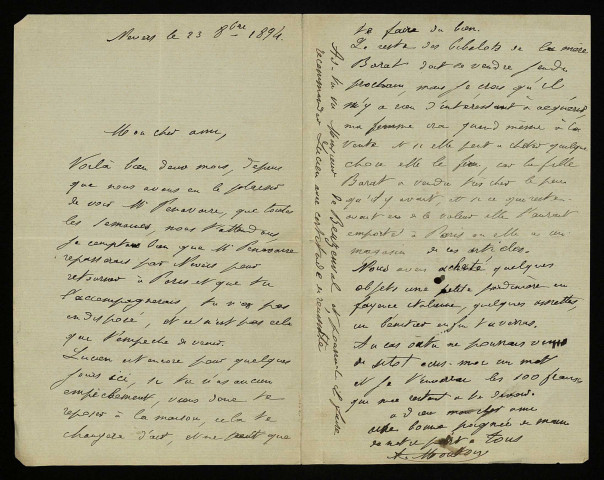 Nevers le 23 8bre 1894.
Mon cher ami,
Voilà bien deux mois, depuis
que nous avons eu le plaisir
de voir Mr Penavaire, que toutes
les semaines, nous t'attendons
je comptais bien que Mr Penavaire
repasserait par Nevers pour
retourner à Paris et que tu
l'accompagnerais, tu n'es pas
indisposé, et ce n'est pas cela
qui t'empêche de venir.
Lucien est encore pour quelques
jours ici, si tu n'as aucun
empêchement, viens donc te
reposer à la maison, cela te
changera d'air, et ne peut que
te faire du bien.
Le reste des bibelots de la mère
Barat doit se vendre jeudi
prochain, mais je crois qu'il
n'y a rien d'intéressant à acquérir,
ma femme ira quand même à la
vente et si elle peut acheter quelque
chose elle le fera, car la fille
Barat a vendu très cher le peu
qu'il y avait, et si ce qui reste
avait eu de la valeur elle l'aurait
emporté à Paris où elle a un
magasin de ces articles.
Nous avons acheté quelques
objets une petite jardinière en
faïence italienne, quelques assiettes,
un bénitier enfin tu verras.
Au cas où tu ne pourrais venir
de sitôt écris-moi un mot
et je t'enverrai les 100 francs
qui me restent à te devoir.
adieu mon cher ami
une bonne poignée de main
de notre part à tous
As-tu vu Monsieur de et
recommandé Lucien